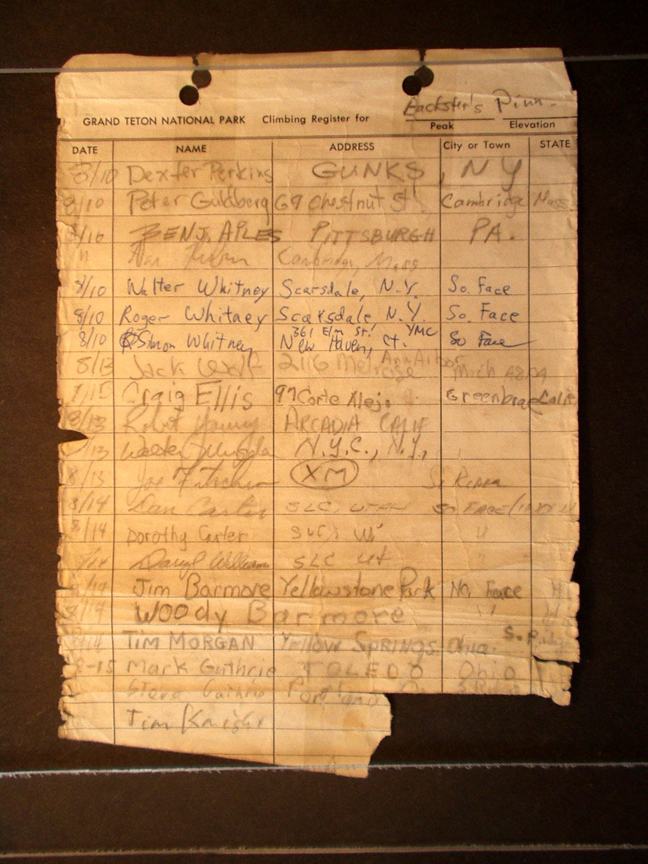 Backster's Pinn.
GRAND TETON NATIONAL PARK Climbing Register for Peak Elevation
DATE NAME ADDRESS City or Town STATE
8/10 Dexter Perkins GUNKS, NY
8/10 Peter Guldberg 69 Chestnut St. Cambridge Mass
8/10 BENJ. APLES PITTSBURGH PA.
" Cambridge, Mass
8/10 Walter Whitney Scarsdale, N.Y. So. Face
8/10 Roger Whitney Scarsdale, N.Y. So. Face
361 Elm St. YMC
8/10 Simon Whitney New Haven, Ct. So Face
8/13 Jack Wolf 2116 Melrose Ann Arbor Mich
/15 Craig Ellis 97 Corte Alejo Greenbrae Calif
8/13 Robt ARCADIA CALIF
/13 N.Y.C., N.Y.
8/13 Joe XM
8/14 Dan Carter SLC, UTAH SO FACE
8/14 Dorothy Carter "
Daryl William SLC Ut "
Jim Barmore Yellowstone Park No. Face
Woody Barmore "
TIM MORGAN Yellow SPRINGS, Ohio
8-15 Mark Guthrie TOLEDO Ohio
Steve Guthrie Portland
Tim Knight